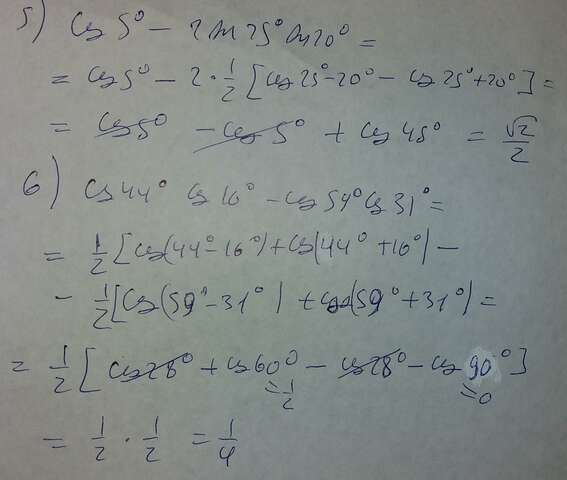 5) cos 5° - 2 sin 25° sin 20° =
= cos 5° - 2 · 1/2 [cos 25° - 20° - cos 25° + 20°] =
= cos 5° - cos 5° + cos 45° = √2/2
6) cos 44° cos 16° - cos 59° cos 31° =
= 1/2 [cos(44° - 16°) + cos(44° + 16°) -
- 1/2 [cos(59° - 31°) + cos(59° + 31°) =
= 1/2 [cos 28° + cos 60° - cos 28° - cos 90°]
= 1/2 = 0
= 1/2 · 1/2 = 1/4